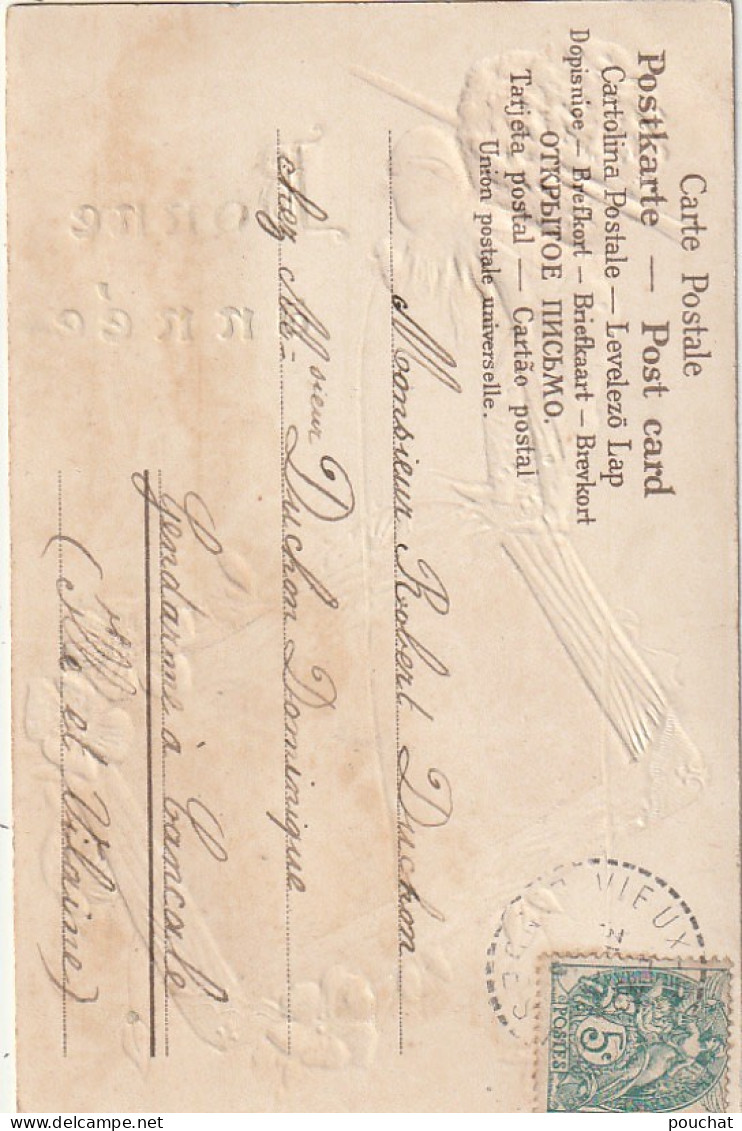 Carte Postale
Postkarte — Post card
Cartolina Postale — Levelező Lap
Dopisnice — Brefkort — Briefkaart — Brevkort
ОТКРЫТОЕ ПИСЬМО.
Tarjeta postal — Cartão postal
Union postale universelle.
Monsieur Robert Duchon
chez Monsieur Duchon Dominique
Gendarme à Cancale
(Ille et Vilaine)
VIEUX
5c
POSTES
onne
nnée
pouchat